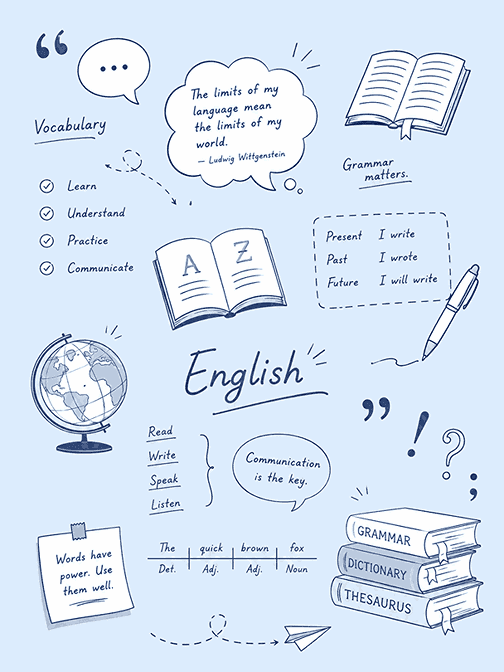 “
The limits of my
language mean
the limits of my
world.
— Ludwig Wittgenstein
Vocabulary
Learn
Understand
Practice
Communicate
Grammar
matters.
A Z
Present I write
Past I wrote
Future I will write
English
” ! ? ;
Read
Write
Speak
Listen
Communication
is the key.
The quick brown fox
Det. Adj. Adj. Noun
Words have
power. Use
them well.
GRAMMAR
DICTIONARY
THESAURUS